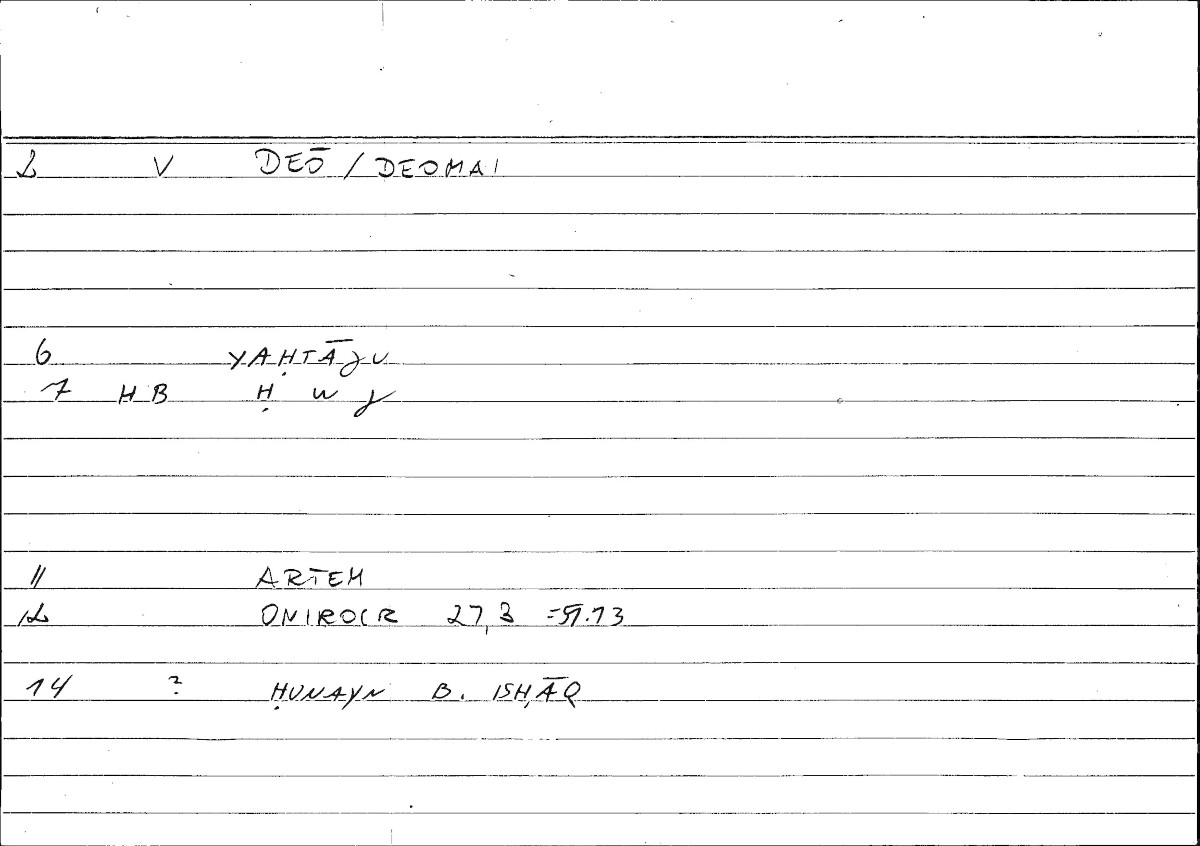 2 V DEŌ / DEOMAI
6 YAḤTĀJU
7 HB Ḥ W J
11 ARTEM
12 ONIROCR 27,3 = 51.13
14 ? ḤUNAYN B. ISḤĀQ